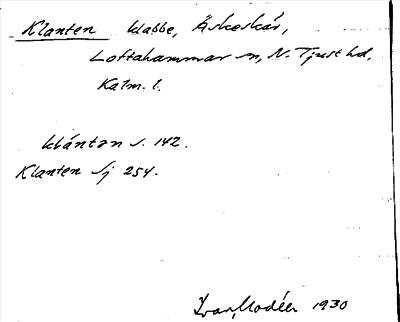 Klanten klabbe, Äskeskär,
Loftahammar sn, N. Tjust hd,
Kalm. l.
klánton s. 142.
Klanten Sj 254.
Ivar Modéer 1930